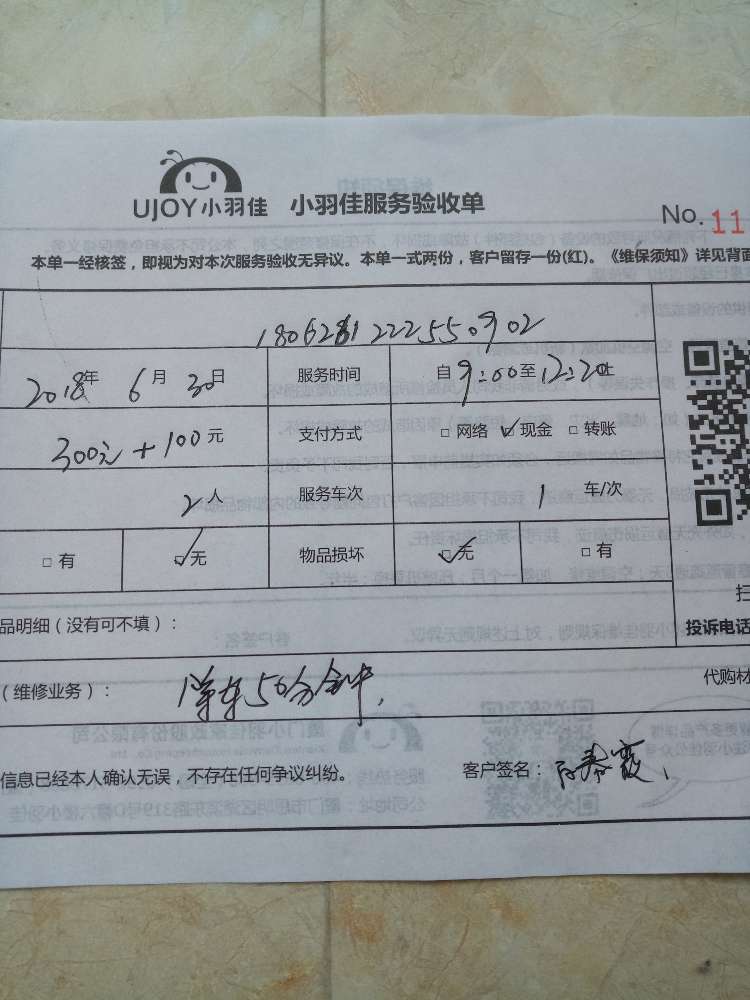 UJOY小羽佳 小羽佳服务验收单
No. 11
本单一经核签，即视为对本次服务验收无异议。本单一式两份，客户留存一份(红)。《维保须知》详见背面
180628122255 0902
2018年 6月 30日 服务时间 自9:00至12:20止
300元+100元 支付方式 □网络 ☑现金 □转账
2人 服务车次 1 车/次
□有 ☑无 物品损坏 ☑无 □有
扫
品明细（没有可不填）： 投诉电话
（维修业务）： 50分钟 代购材
信息已经本人确认无误，不存在任何争议纠纷。 客户签名：